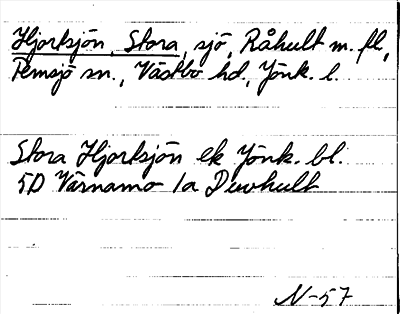 Hjortsjön, Stora, sjö, Råhult m. fl.,
Femsjö sn., Västbo hd., Jönk. l.
Stora Hjortsjön ek Jönk. bl.
5D Värnamo 1a Duvhult
N-57